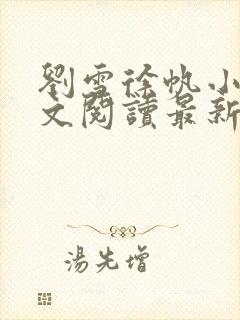 劉雪徐帆小
文閱讀最新
湯先增